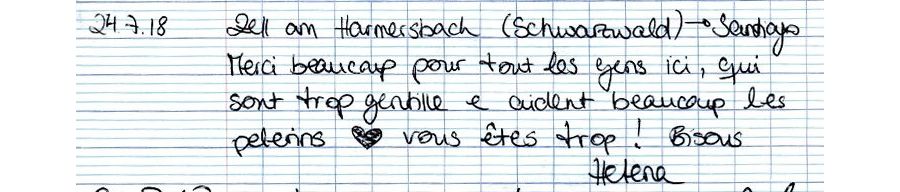 24.7.18 Zell am Harmersbach (Schwarzwald) → Santiago
Merci beaucoup pour tout les gens ici, qui
sont trop gentille e aident beaucoup les
pelerins ♥ vous êtes trop! Bisous
Helena